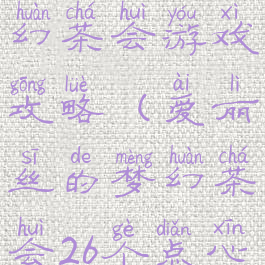 huàn chá huì yóu xì
幻茶会游戏
gōng lüè ài lì
攻略（爱丽
sī de mèng huàn chá
丝的梦幻茶
huì gè diǎn xīn
会26个点心